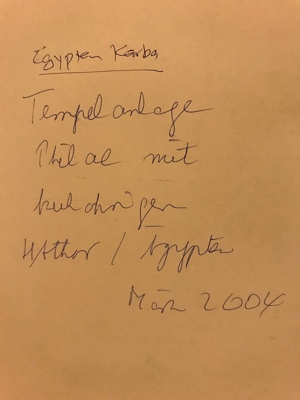 Ägypten Korba
Tempelanlage
Philae mit
kuhohrigen
Hathor / Ägypten
März 2004